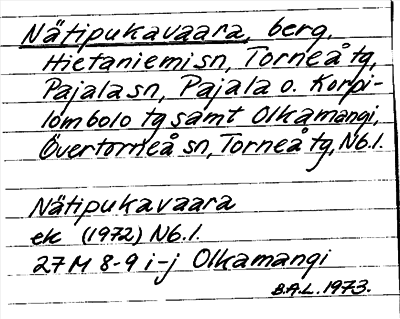 Nätipukavaara, berg,
Hietaniemi sn, Torneå tg,
Pajala sn, Pajala o. Korpi-
lombolo tg samt Olkamangi,
Övertorneå sn, Torneå tg, Nb.l.
Nätipukavaara
ek (1972) Nb.l.
27 M 8-9 i-j Olkamangi
B.A.L. 1973.